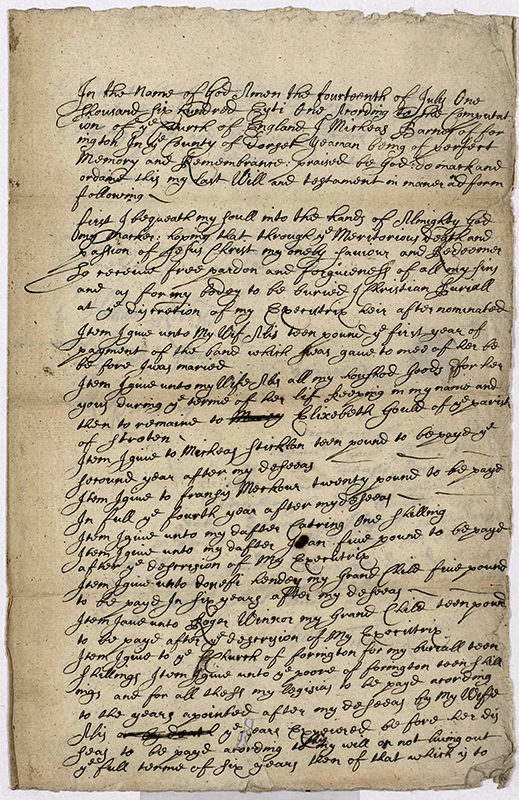 In the Name of God Amen the fourteenth of July One
thousand six hundred Eyti One Acording to the Computat
ion of ye Church of England I Micheas Barnor of for
ington In ye County of Dorset Yeaman being of perfect
Memory and Remembrance: praised be God: do mack and
ordaine this my Last Will and testament in maner ad form
following
first I bequeath my soull into the hands of Almighty God
my Macker: hoping that through ye Meritorious Death and
passion of Jesus Christ my onely saviour and Redeemer
to receive free pardon and forguieness of all my sins
and as for my bodey to be buried I Christian Buriall
at ye discretion of my Executrix heir after nominated
Item I give unto My Wif Alis teen pound ye first year of
payment of the band which was gave to mee of her be
be fore I was maried
Item I give unto my Wife Alis all my houshod Goods for her
yous during ye terme of her lif keeping in my name and
then to remaine to Elixebeth Gould of ye parish
of Stroten
Item I give to Micheas Sticklan teen pound to be payd ye
second year after my deseeas
Item I give to Francis Meckour twenty pound to be payd
In full ye fourth year after my deseeas
Item I give unto my dafter Catring One shilling
Item I give unto my dafter Joan five pound to be payd
after ye descresion of My Executrix
Item I give unto Hendey my Grand Child five pound
to be payd In six years after my deseeas
Item I gave unto Roger Winsor my Grand Child teen pound
to be payd after ye descresion of My Executrix
Item I give to ye Church of forington for my buriall teen
shillings Item I give unto ye poore of forington teen shill
ings and for all thess my Legisias to be payd acording
to the years apointed after my deseeas by My Wife
Alis ye years Expeired be fore her dis
seas to be payd acording to my will or not living out
ye full terme of six years then of that which is to